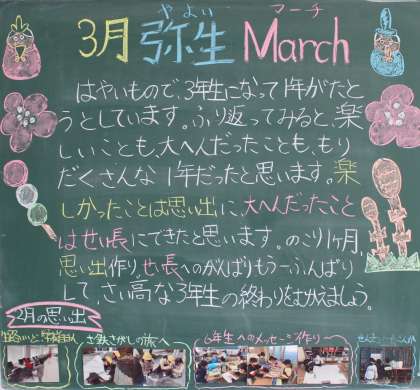 やよい マーチ
3月 弥生 March
はやいもので、3年生になって1年がたと
うとしています。ふり返ってみると、楽
しいことも、大へんだったことも、もり
だくさんな1年だったと思います。楽
しかったことは思い出に、大へんだったこと
はせい長にできたと思います。のこり1ヶ月、
思い出作り、せい長へのがんばりもう一ふんばり
して、さい高な3年生の終わりをむかえましょう。
2月の思い出
さ鉄さがしの旅へ
6年生へのメッセージ作り